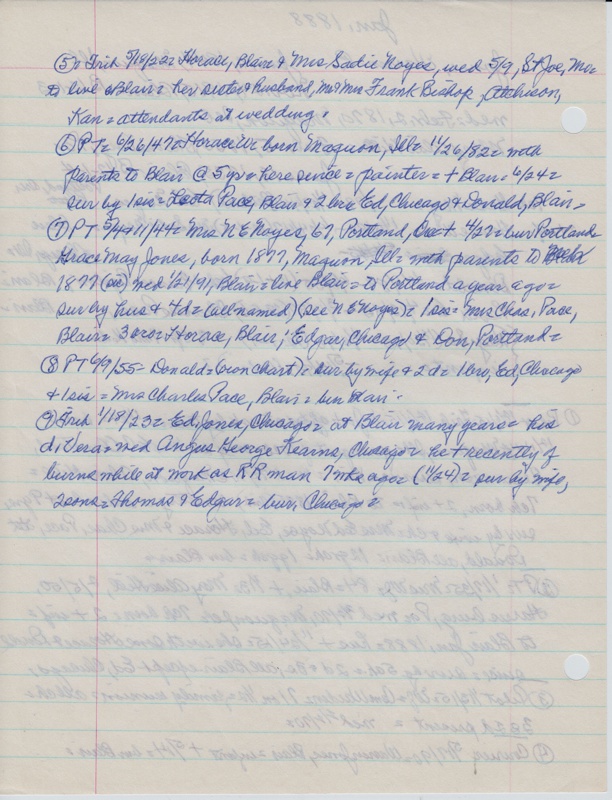 ⑤ = Trib 5/19/22 = Horace, Blair & Mrs Sadie Noyes, wed 5/9, St Joe, Mo =
to live Blair = her sister & husband, Mr & Mrs Frank Bishop, Atchison,
Kan = attendants at wedding.
⑥ PT = 6/26/47 = Horace W = born Maquon, Ill = 11/26/82 = with
parents to Blair @ 5 yrs = here since = painter = + Blair = 6/24 =
sur by 1 sis = Pace, Blair & 2 bro Ed, Chicago & Donald, Blair =
⑦ PT 5/4 + 11/44 = Mrs N E Noyes, 67, Portland, Ore + 4/27 = bur Portland =
Grace May Jones, born 1877, Maquon, Ill = with parents to Blair
1877 (sic) wed 1/21/91, Blair = live Blair = to Portland a year ago =
sur by hus & 4 d = (all named) (see N E Noyes) = 1 sis = Mrs Chas, Pace,
Blair = 3 bro = Horace, Blair, Edgar, Chicago & Don, Portland =
⑧ PT 6/9/55 = Donald = (on chart) = sur by wife & 2 d = 1 bro, Ed, Chicago
& 1 sis = Mrs Charles Pace, Blair = bur Blair =
⑨ Trib 1/18/23 = Ed Jones, Chicago = at Blair many years = his
d, Vera = wed Angus George Kearns, Chicago = he + recently of
burns while at work as RR man 7 wks ago = (11/24) = sur by wife,
2 sons = Thomas & Edgar = bur, Chicago =